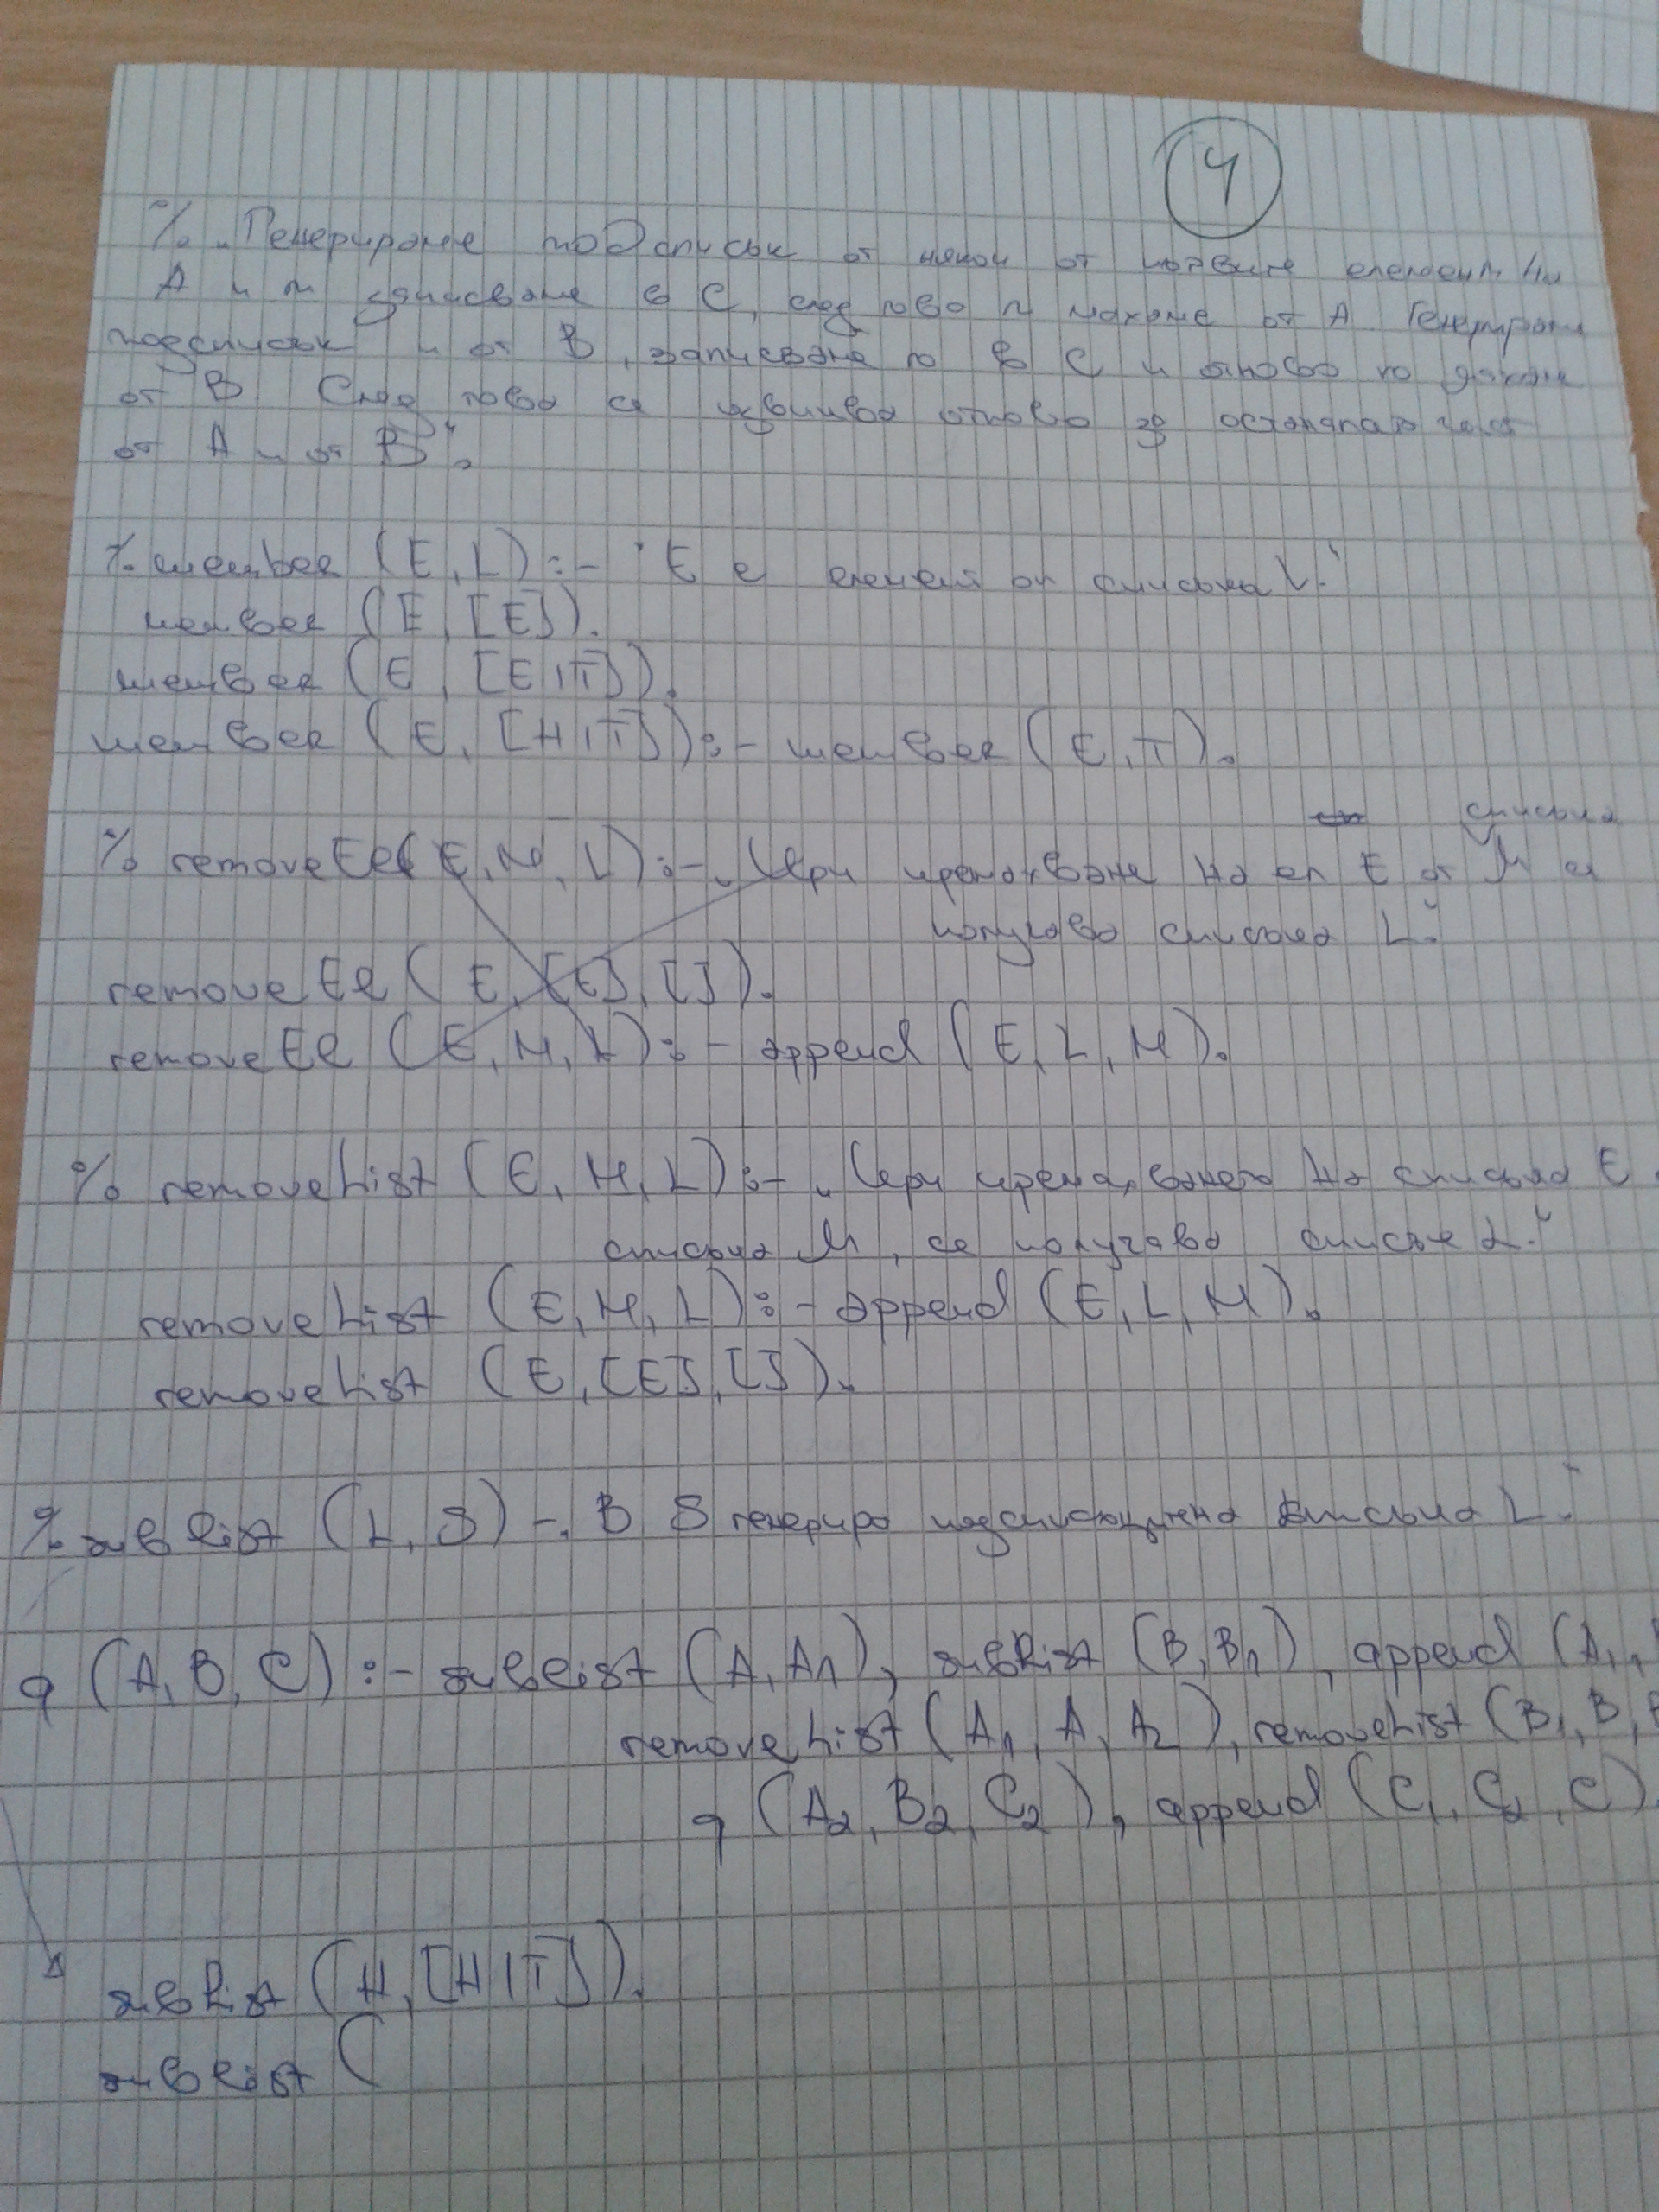 4
% „Генериране подсписък от някои от първите елементи на
А и ги записваме в С, след това ги махаме от А Генерираме
подсписък и от В, записваме го в С и отново го махаме
от В След това се извиква отново за останалата част
от А и от В“.
% member (E, L) :- "E е елемент от списъка L."
member (E, [E]).
member (E, [E|T]).
member (E, [H|T]) :- member (E, T).
списъка
% removeEl (E, M, L) :- „При премахване на ел E от M се
получава списъка L."
removeEl (E, [E], []).
removeEl (E, M, L) :- append (E, L, M).
% removeList (E, M, L) :- „При премахването на списъка E
списъка M, се получава списък L."
removeList (E, M, L) :- append (E, L, M).
removeList (E, [E], []).
% sublist (L, S) - „В S генерира на списъка L."
q (A, B, C) :- sublist (A, A1), sublist (B, B1), append (A1,
removeList (A1, A, A2), removeList (B1, B,
q (A2, B2, C2), append (C1, C2, C).
sublist (H, [H|T]).
sublist (